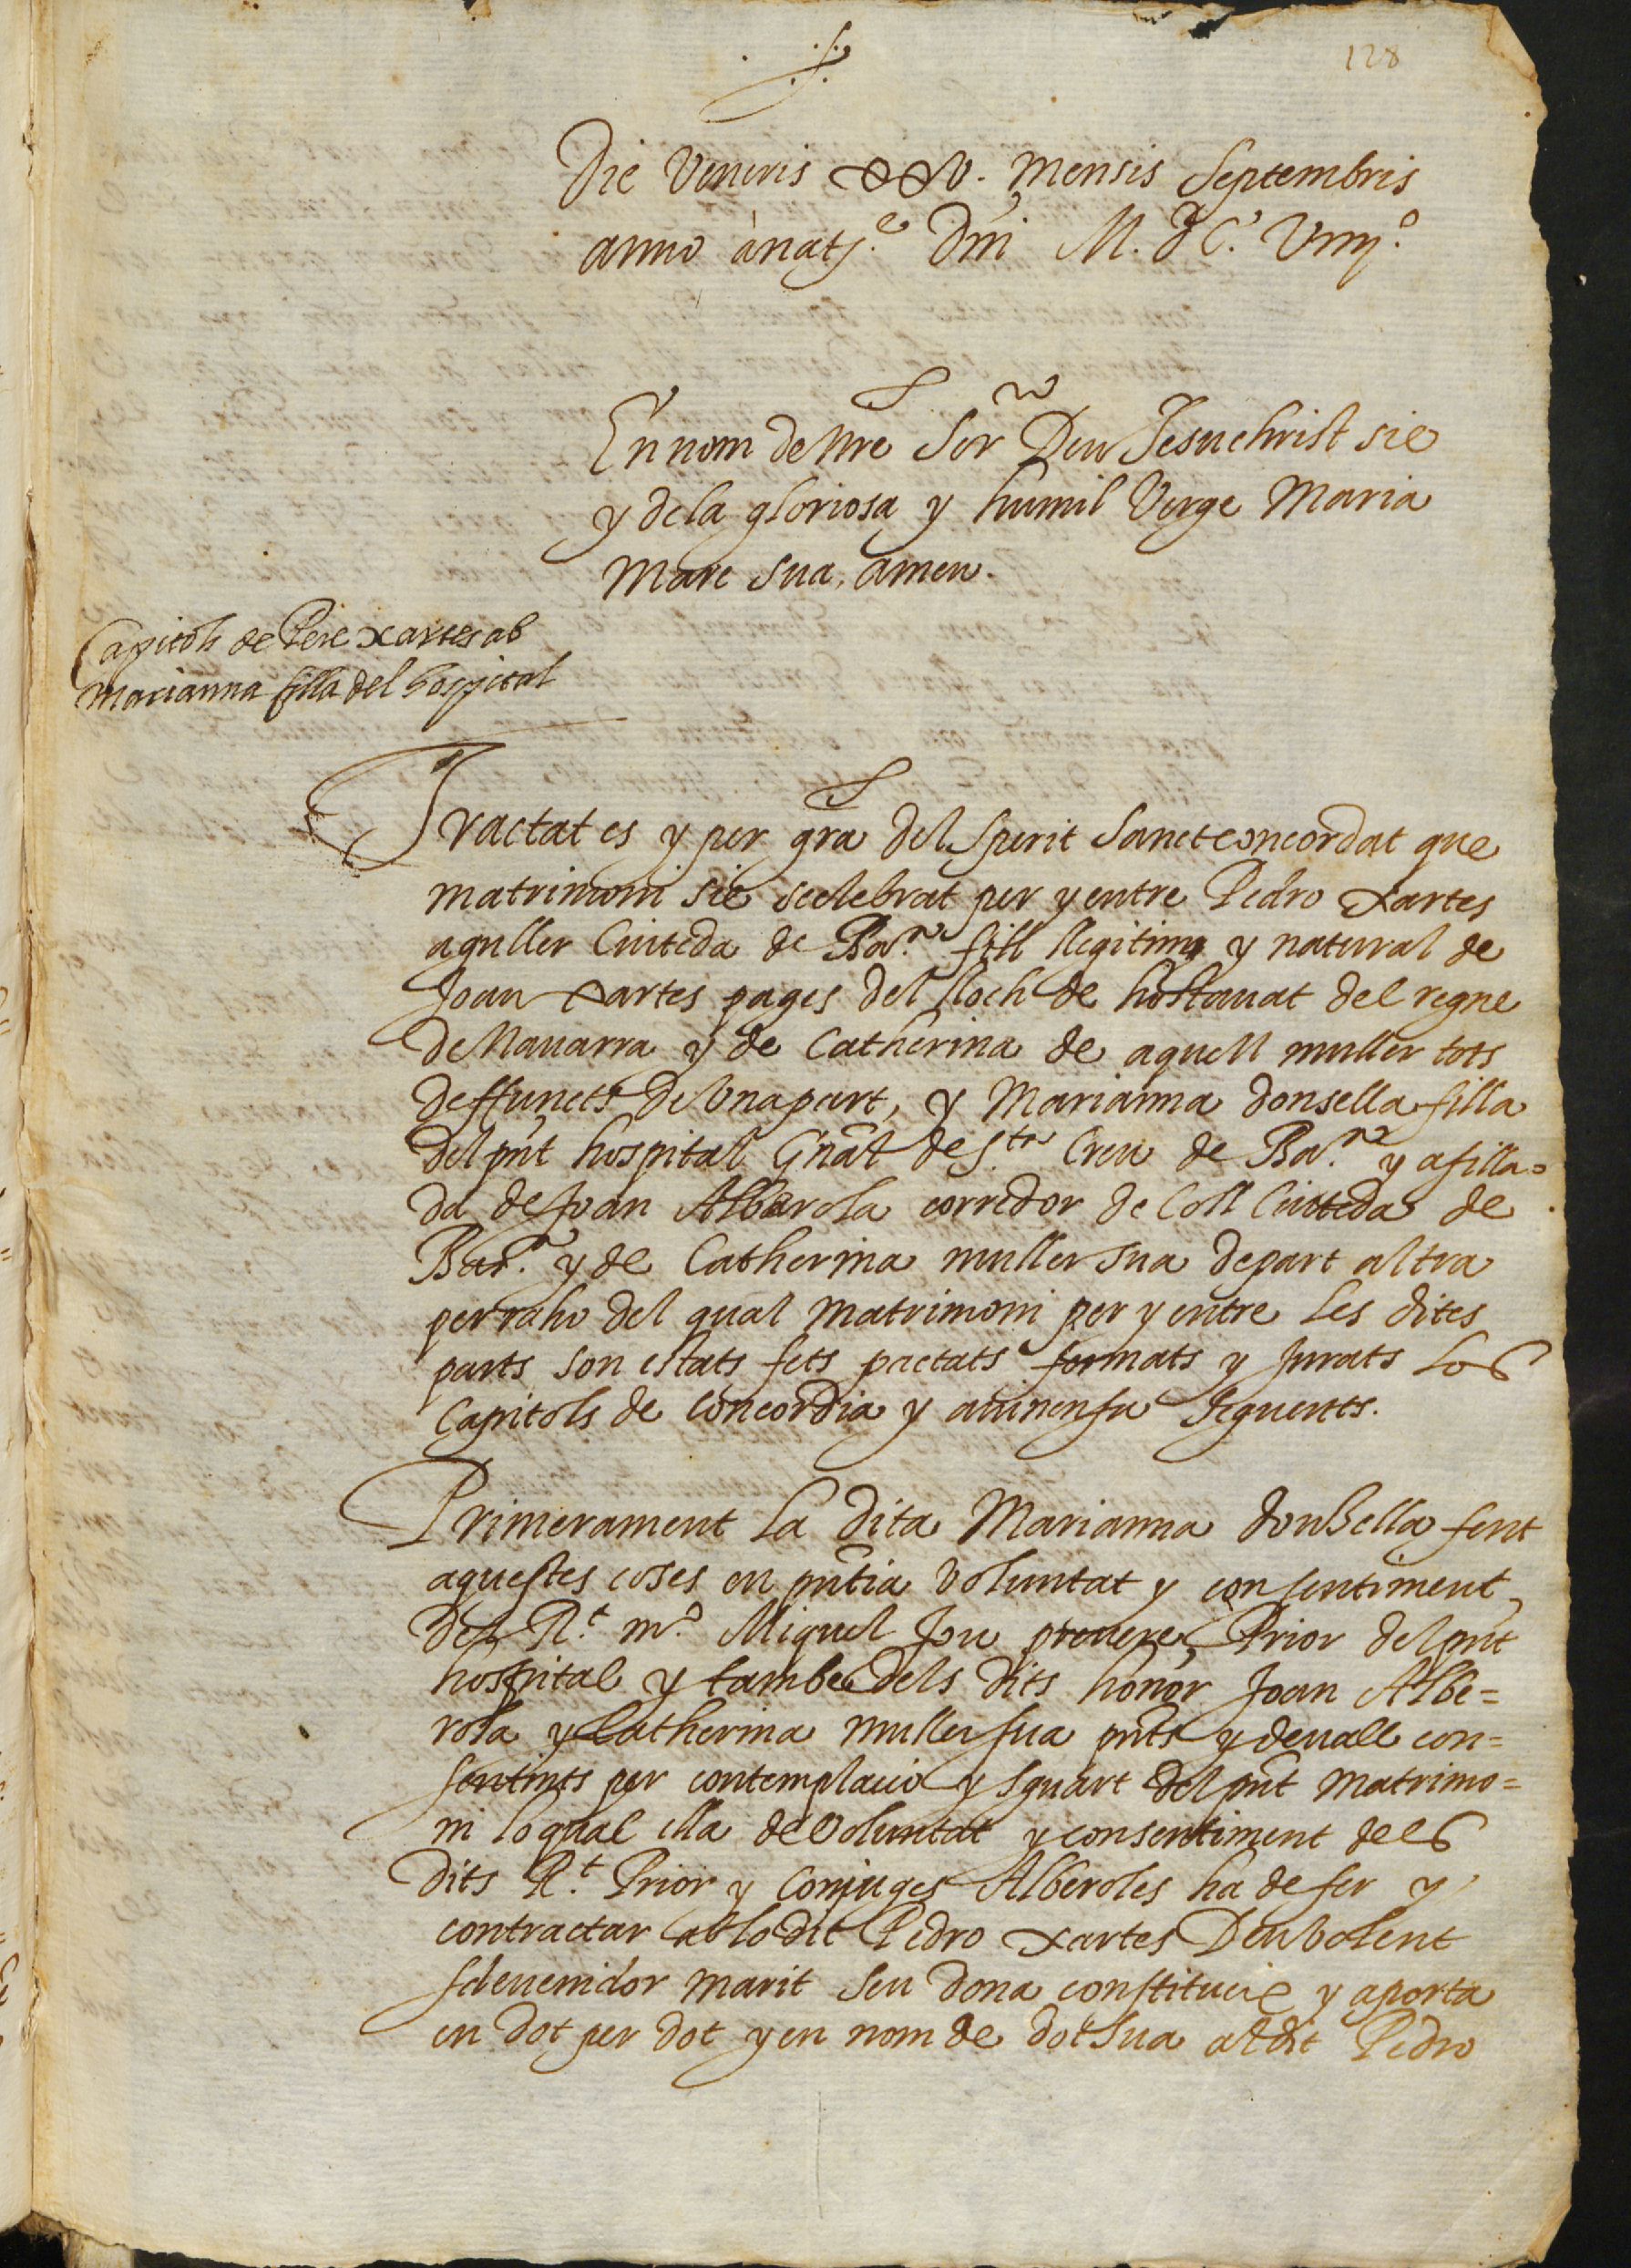 128
Die Veneris xxv. mensis Septembris
anno à nat.e Dni M. d C. Viiij.o
En nom de nre Sor Deu Jesuchrist sie
y de la gloriosa y humil Verge Maria
Mare sua, amen.
Capitols de Pere xartes ab
Marianna filla del hospital
Tractat es y per gra del Sperit Sanct concordat que
matrimoni sie celebrat per y entre Pedro Xartes
aguller Ciutedà de Bar.na fill llegitim y natural de
Joan Xartes pages del lloch de hostauat del regne
de Nauarra y de Catherina de aquell muller tots
deffuncts de Vna part, y Marianna donsella filla
del pnt hospital Gnal de S.ta Creu de Bar.na y afilla=
da de Joan Alberola corredor de Coll Ciutedà de
Bar.na y de Catherina muller sua de part altra
per raho del qual matrimoni per y entre les dites
parts son estats fets pactats formats y jurats los
Capitols de concordia y auinensa seguents.
Primerament la dita Marianna donsella fent
aquestes coses en pntia voluntat y consentiment
del R.t m.o Miquel Jou preuere, Prior del pnt
hospital y tambe dels dits honor Joan Albe=
rola y Catherina muller sua pnts y deuall con=
sentints per contemplacio y sguart del pnt matrimo=
ni lo qual ella de voluntat y consentiment dels
dits R.t Prior y Conjuges Alberoles ha de fer y
contractar ab lo dit Pedro Xartes Deu volent
sdeuenidor marit seu dona constitueix y aporta
en dot per dot y en nom de dot sua al dit Pedro